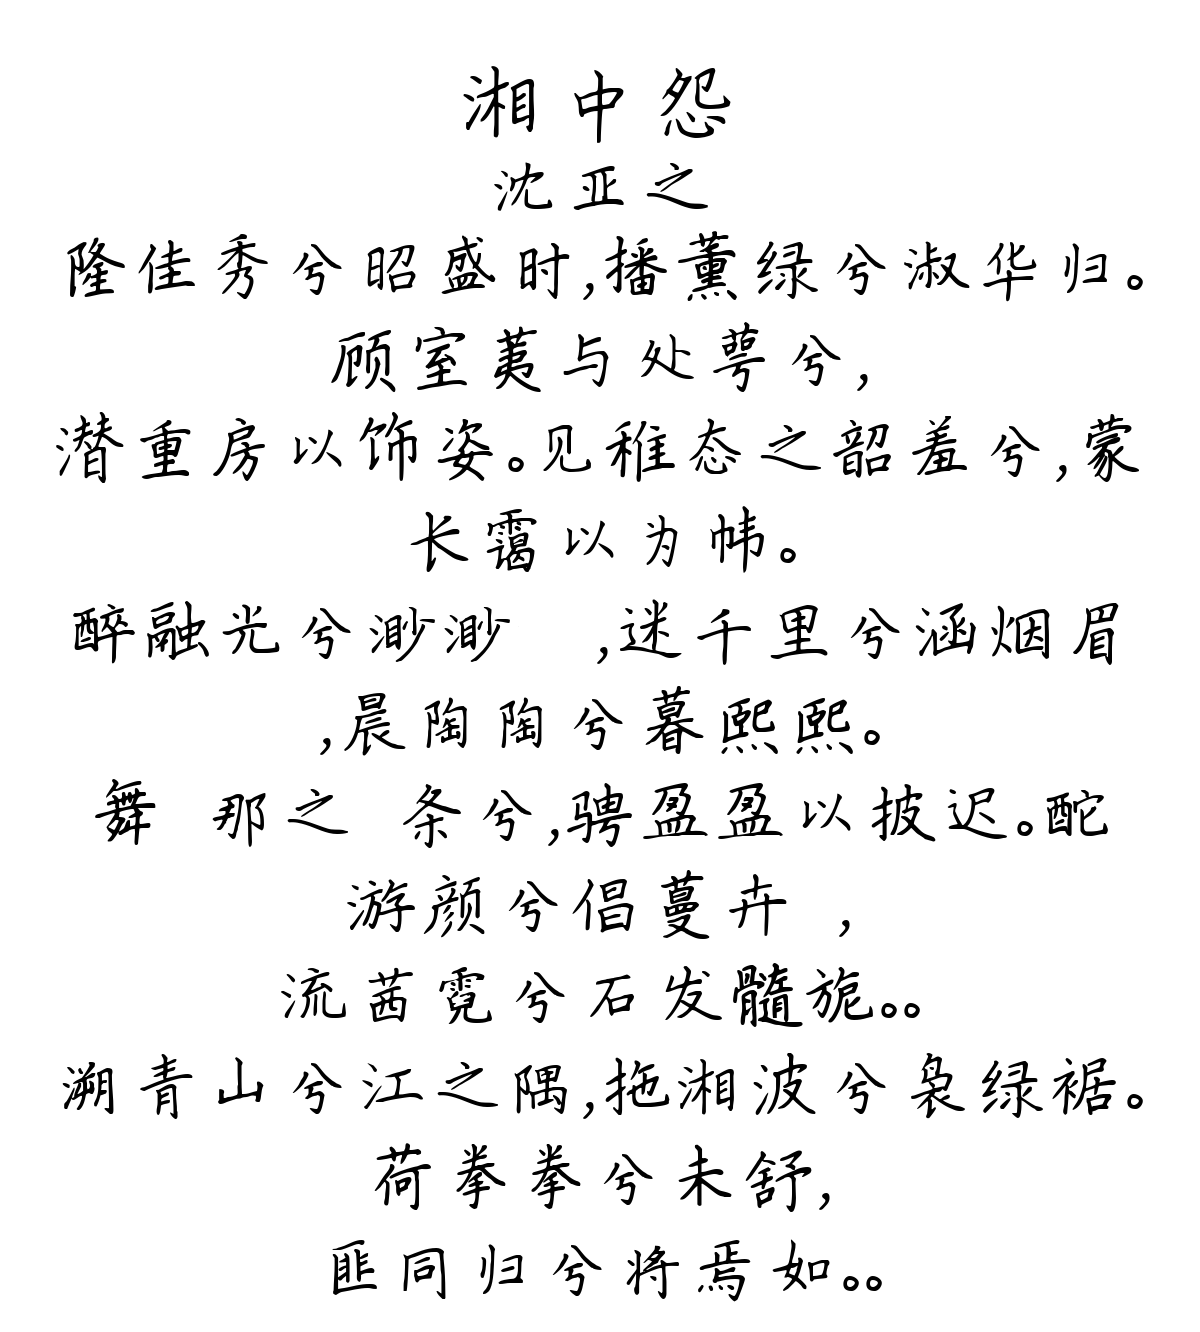 湘中怨
沈亚之
隆佳秀兮昭盛时,播薰绿兮淑华归。
顾室荑与处萼兮,
潜重房以饰姿。见稚态之韶羞兮,蒙
长霭以为帏。
醉融光兮渺渺 ,迷千里兮涵烟眉
,晨陶陶兮暮熙熙。
舞 那之 条兮,骋盈盈以披迟。酡
游颜兮倡蔓卉 ,
流茜霓兮石发髓旎。。
溯青山兮江之隅,拖湘波兮袅绿裾。
荷拳拳兮未舒,
匪同归兮将焉如。。